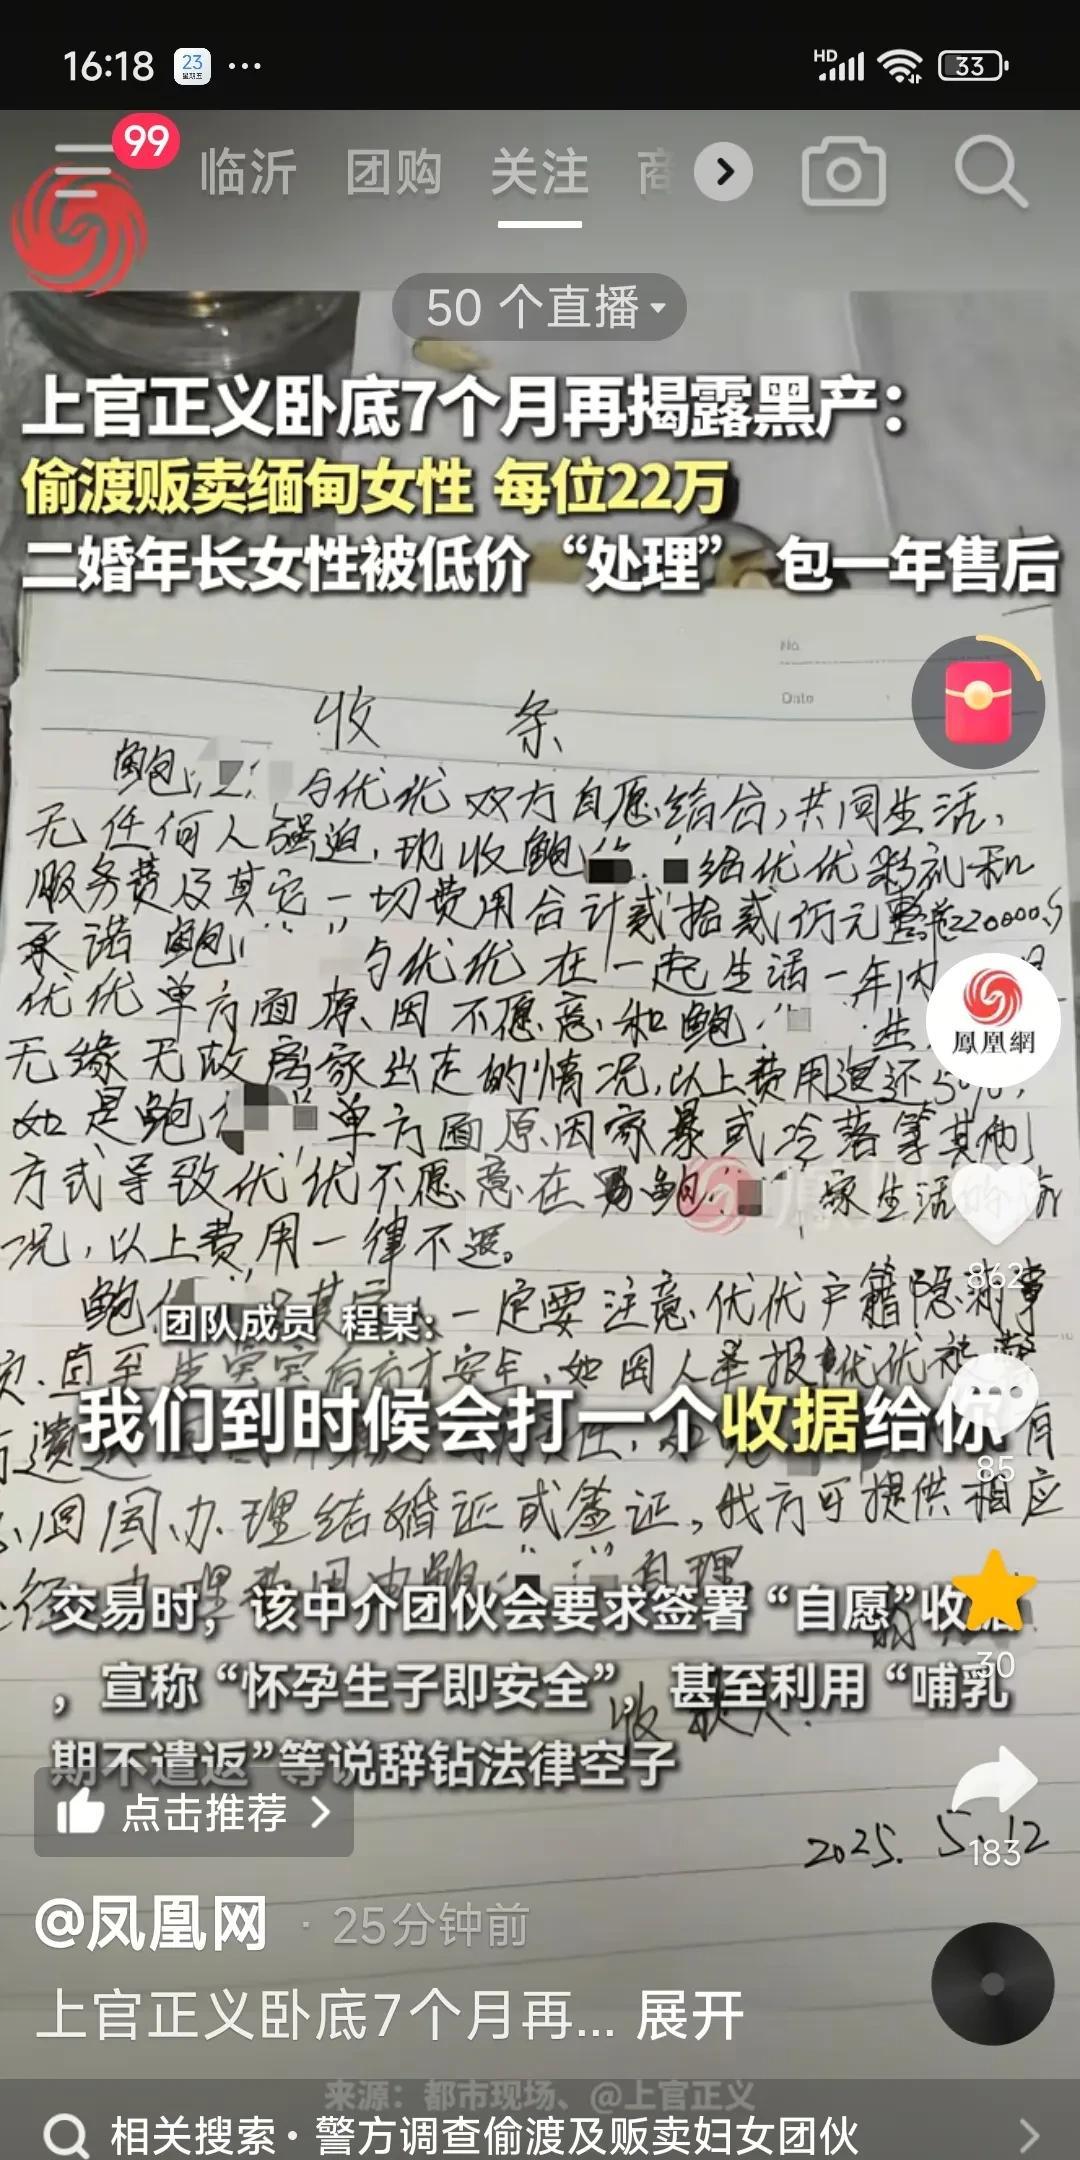 16:18
23
星期五
HD
33
99
临沂 团购 关注 商
50 个直播
上官正义卧底7个月再揭露黑产：
偷渡贩卖缅甸女性 每位22万
二婚年长女性被低价“处理” 包一年售后
No.
Date
收 条
鲍 与优优双方自愿结合，共同生活，
无任何人强迫，现收鲍 给优优彩礼和
服务费及其它一切费用合计贰拾贰仟元整 220000
承诺鲍 与优优在一起生活一年内
优优单方面原因不愿意和鲍 生
无缘无故离家出走的情况，以上费用退还50%，
如是鲍 单方面原因家暴或冷落等其他
方式导致优优不愿意在男鲍 家生活的
况，以上费用一律不退。
鲍 一定要注意优优户籍隐私事
直至生 后方才安全，如因人举报优优被
遣 有
回国办理结婚证或签证，我方可提供相应
办理费用由鲍 自理
收款人：
2025. 5.12
鳳凰網
862
团队成员 程某：
我们到时候会打一个收据给你
85
交易时，该中介团伙会要求签署“自愿”收据
，宣称“怀孕生子即安全”，甚至利用“哺乳
期不遣返”等说辞钻法律空子
30
点击推荐
183
@凤凰网 · 25分钟前
上官正义卧底7个月再... 展开
来源：都市现场、@上官正义
相关搜索·警方调查偷渡及贩卖妇女团伙